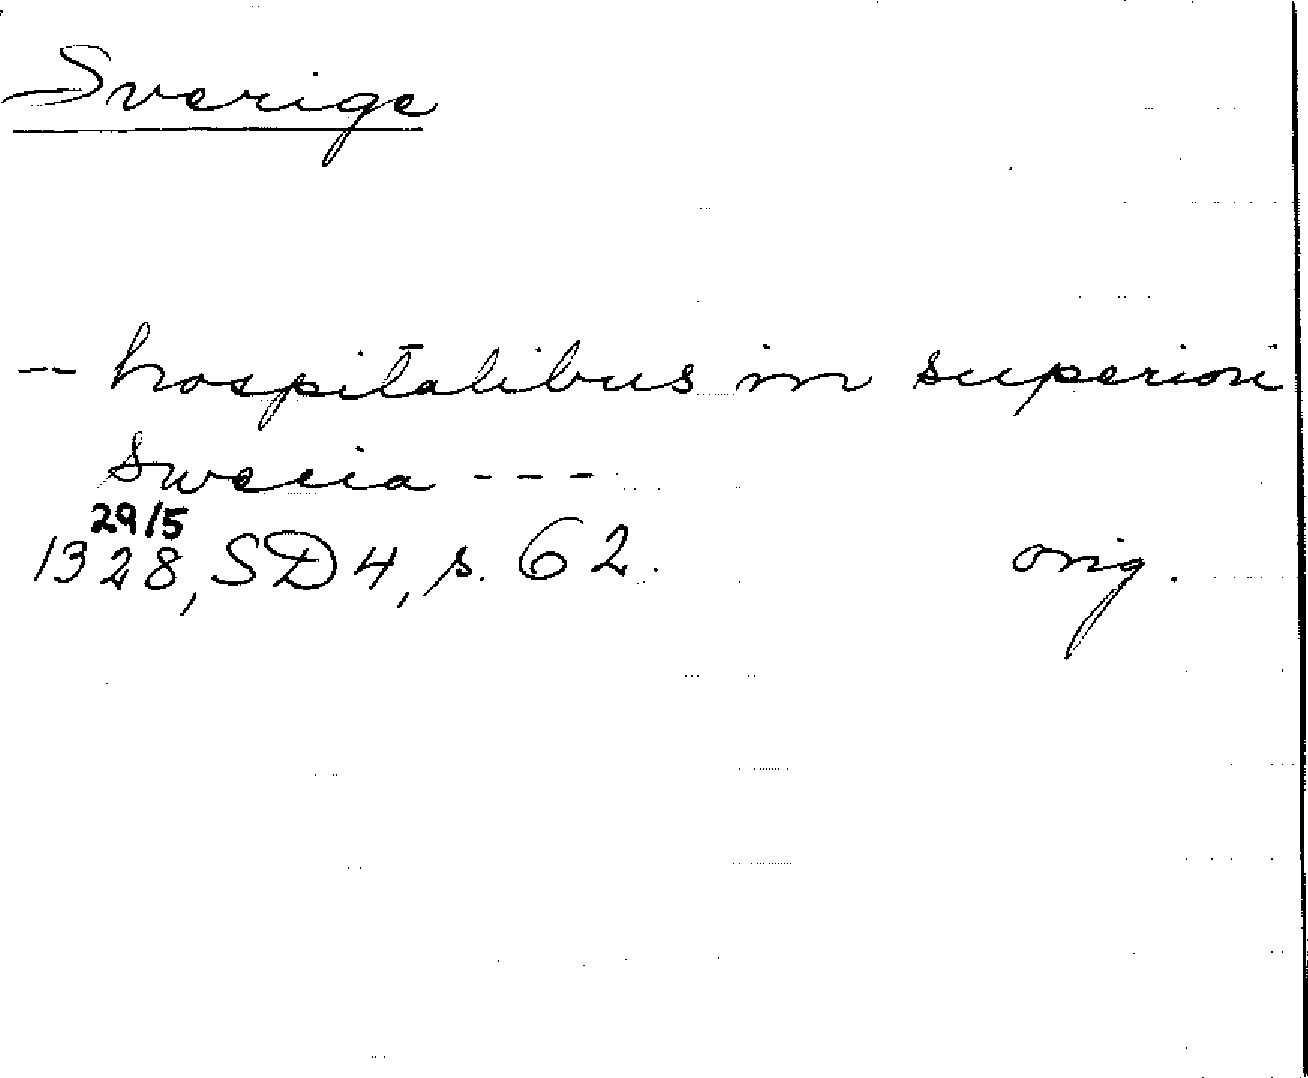 Sverige
-- hospitalibus in superiori
Swecia ---
29/5
1328, SD4, s. 62. orig.